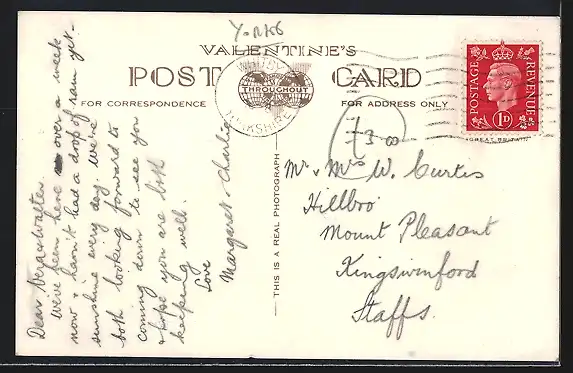 Y-RK6
VALENTINE'S
POST CARD
THROUGHOUT
FOR CORRESPONDENCE
FOR ADDRESS ONLY
POSTAGE
REVENUE
1D
£3 00
Dear Vera & Walter
We've been here over a week
now & havn't had a drop of rain yet -
sunshine every day. We're
both looking forward to
coming down to see you
& hope you are both
keeping well.
Love
Margaret & Charlie
THIS IS A REAL PHOTOGRAPH
Mr & Mrs W. Curtis
Hillbro'
Mount Pleasant
Kingswinford
Staffs.